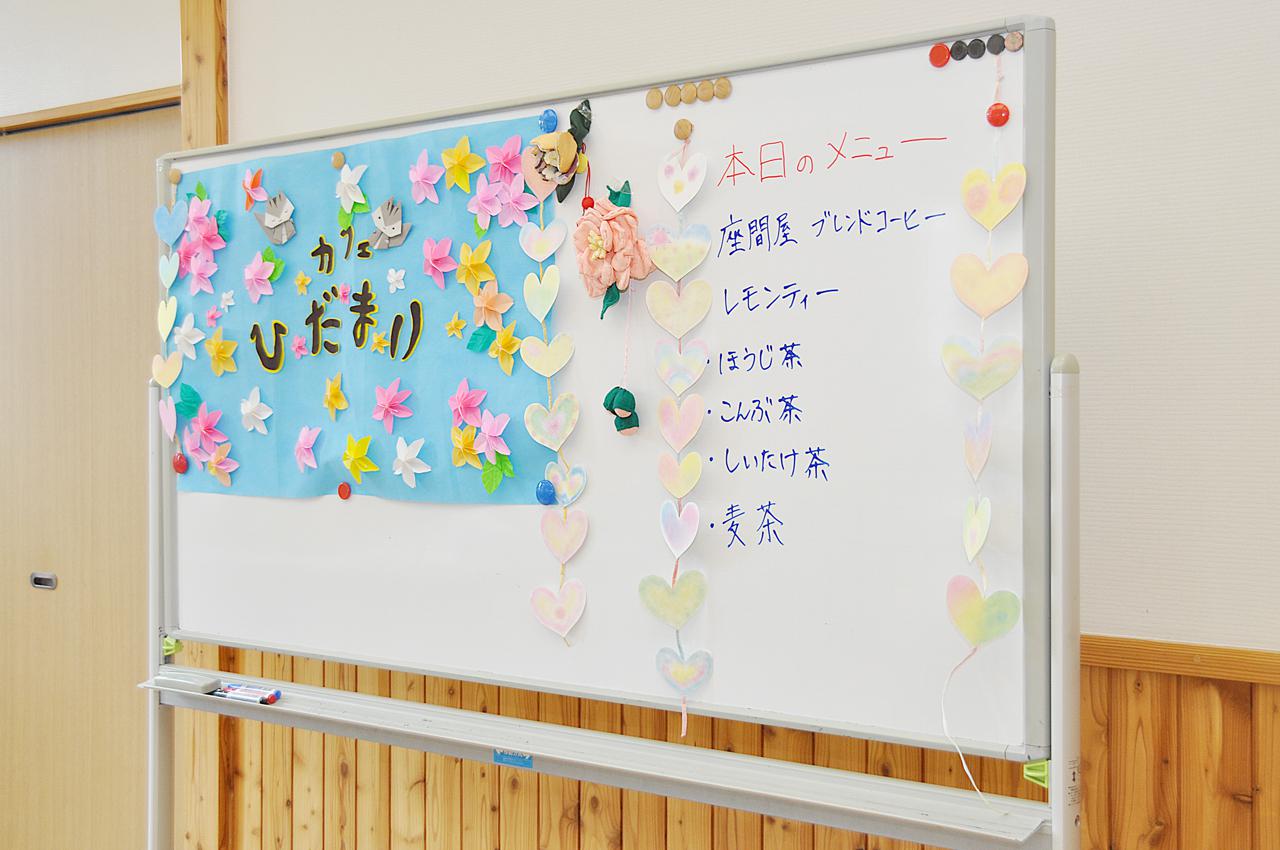 カフェ
ひだまり
本日のメニュー
座間屋 ブレンドコーヒー
レモンティー
・ほうじ茶
・こんぶ茶
・しいたけ茶
・麦茶